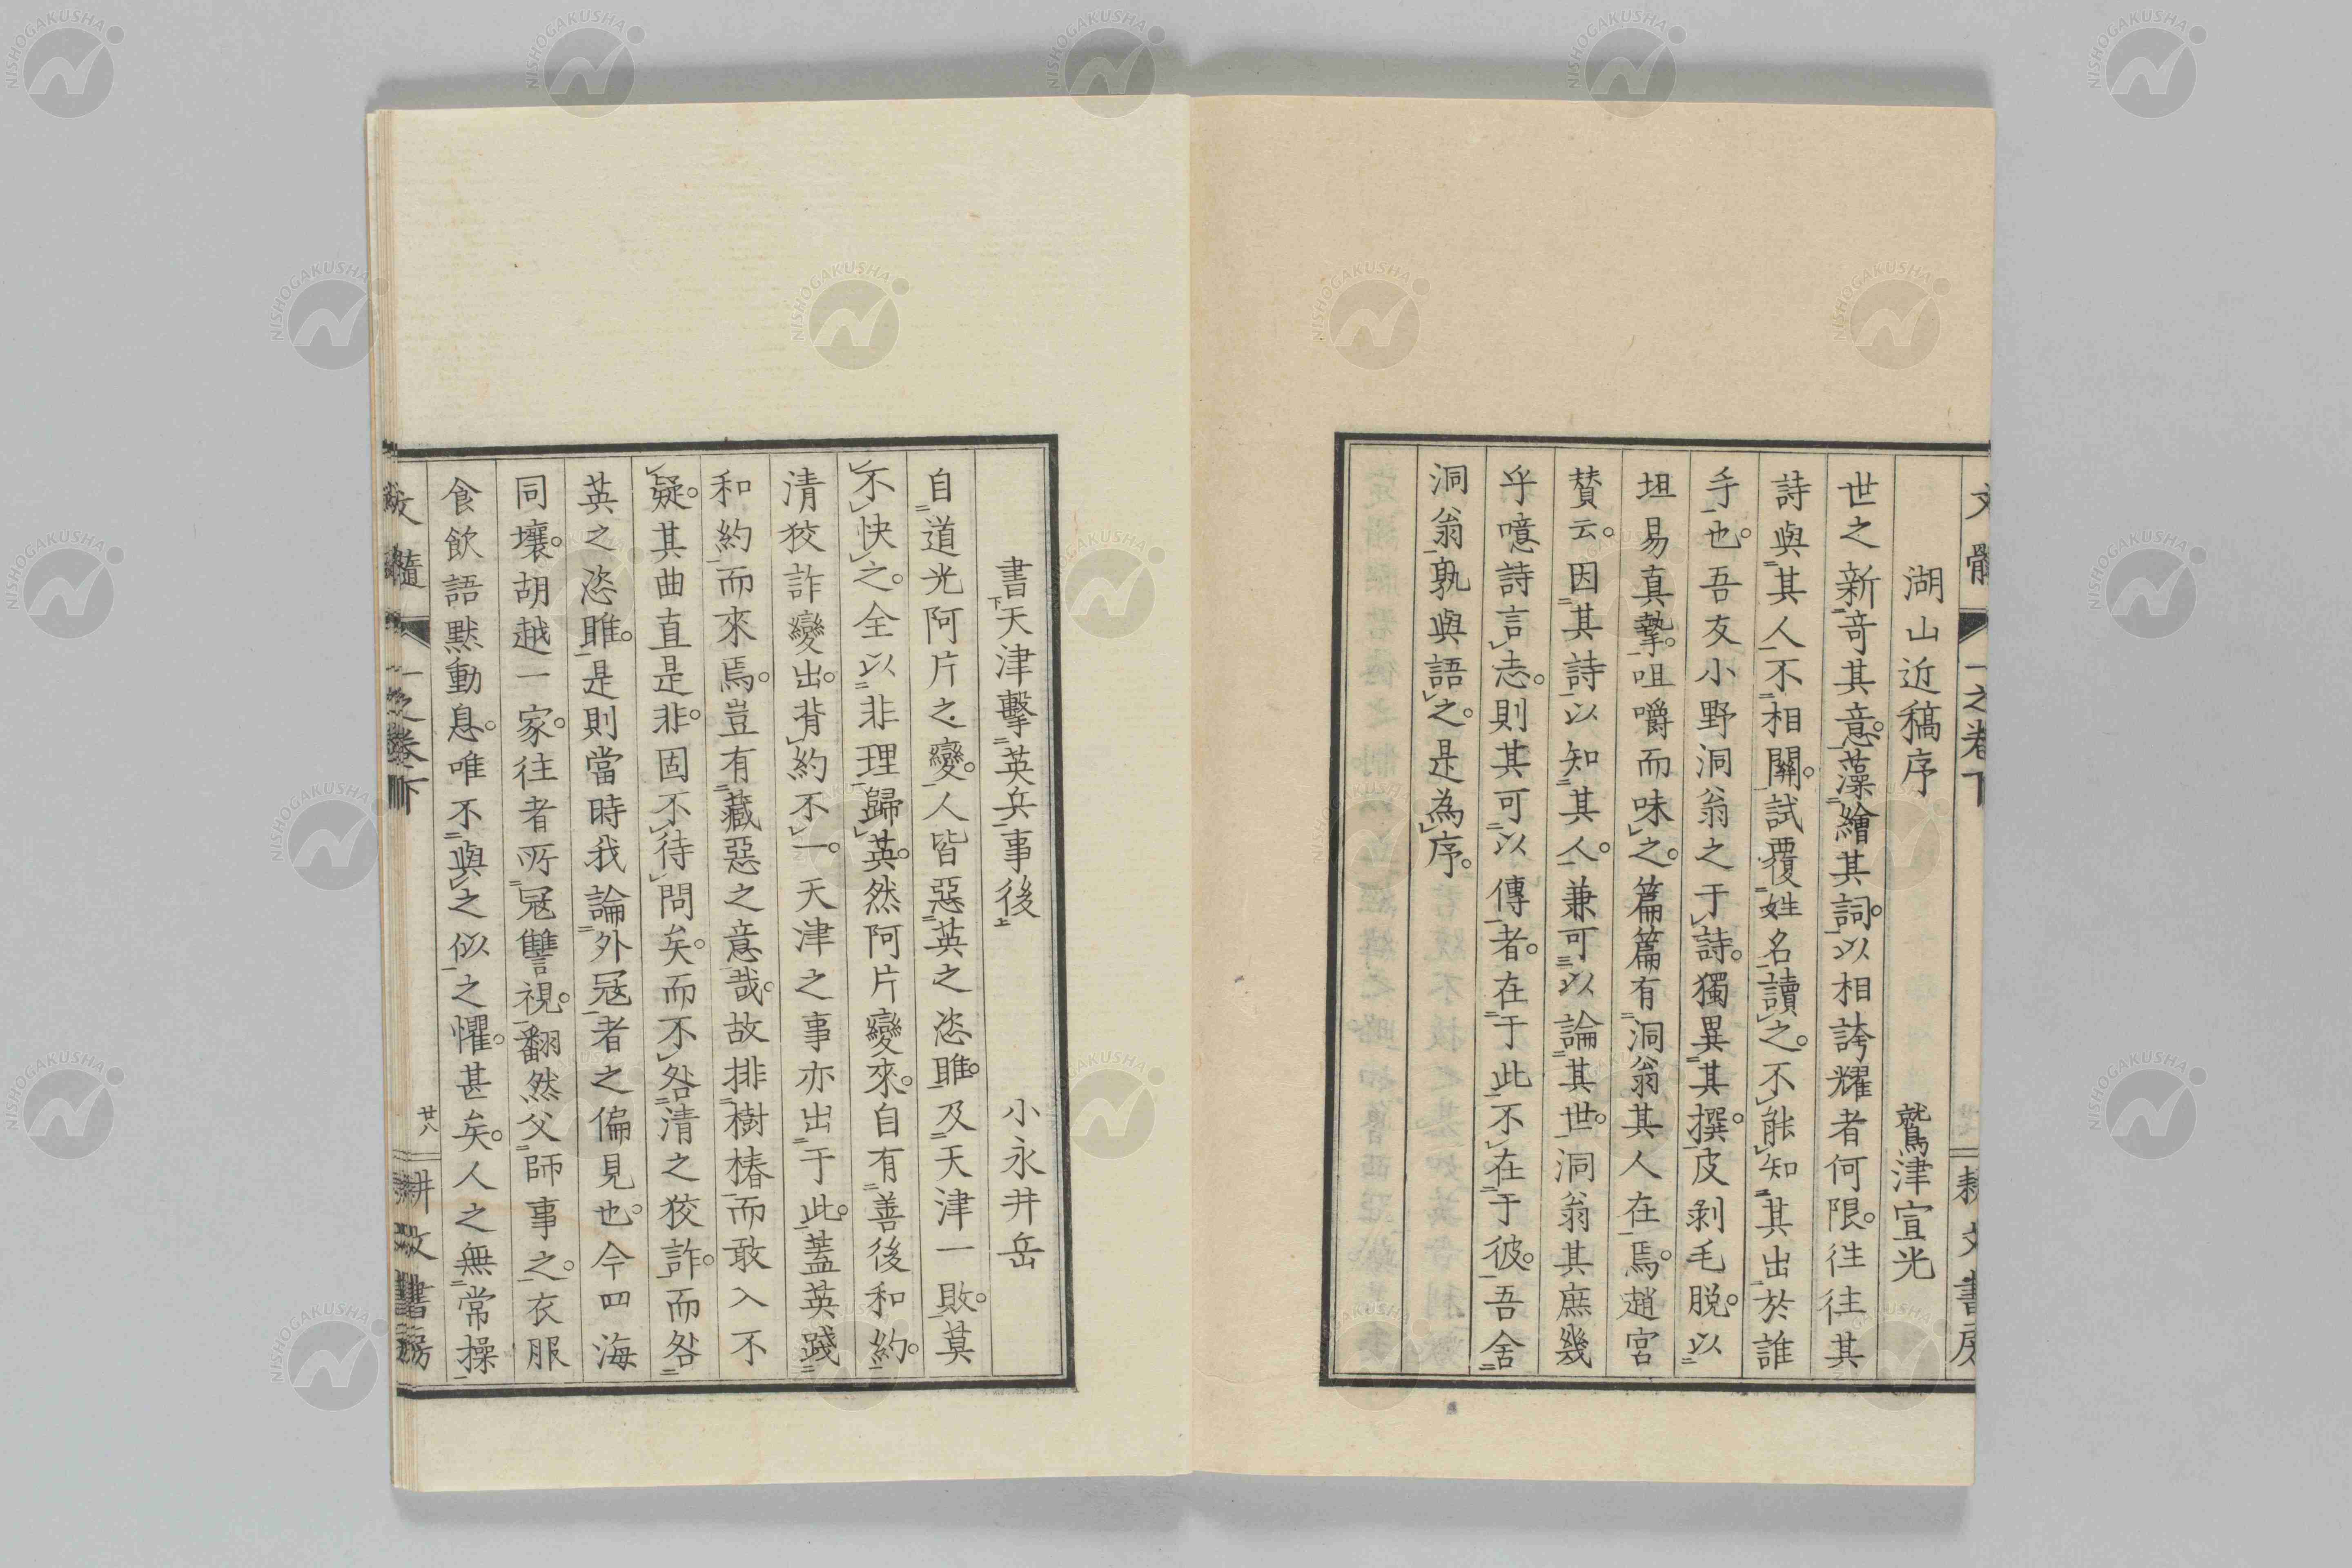 文髓 一之卷下 耕文書房
湖山近稿序 鷲津宣光
世之新奇其意。藻繪其詞。以相誇耀者何限。往往其
詩與其人不相關。試覆姓名讀之。不能知其出於誰
手也。吾友小野洞翁之于詩。獨異其撰。皮剥毛脱。以
坦易真摯。咀嚼而味之。篇篇有洞翁其人在焉。趙宮
賛云。因其詩以知其人。兼可以論其世。洞翁其庶幾
乎噫詩言志。則其可以傳者。在于此不在于彼。吾舍
洞翁孰與語之。是為序。
書天津擊英兵事後 小永井岳
下 上
自道光阿片之變。人皆惡英之恣睢。及天津一敗。莫
不快之。全以非理歸英。然阿片變來。自有善後和約。
清狡詐變出。背約不一。天津之事亦出于此。蓋英踐
和約而來焉。豈有藏惡之意哉。故排樹樁而敢入不
疑。其曲直是非。固不待問矣。而不咎清之狡詐。而咎
英之恣睢。是則當時我論外冦者之偏見也。今四海
同壤。胡越一家。往者所冦讐視。翻然父師事之。衣服
食飲語默動息。唯不與之似之懼。甚矣。人之無常操
文髓 一之卷下 廿八 耕文書房
NISHOGAKUSHA